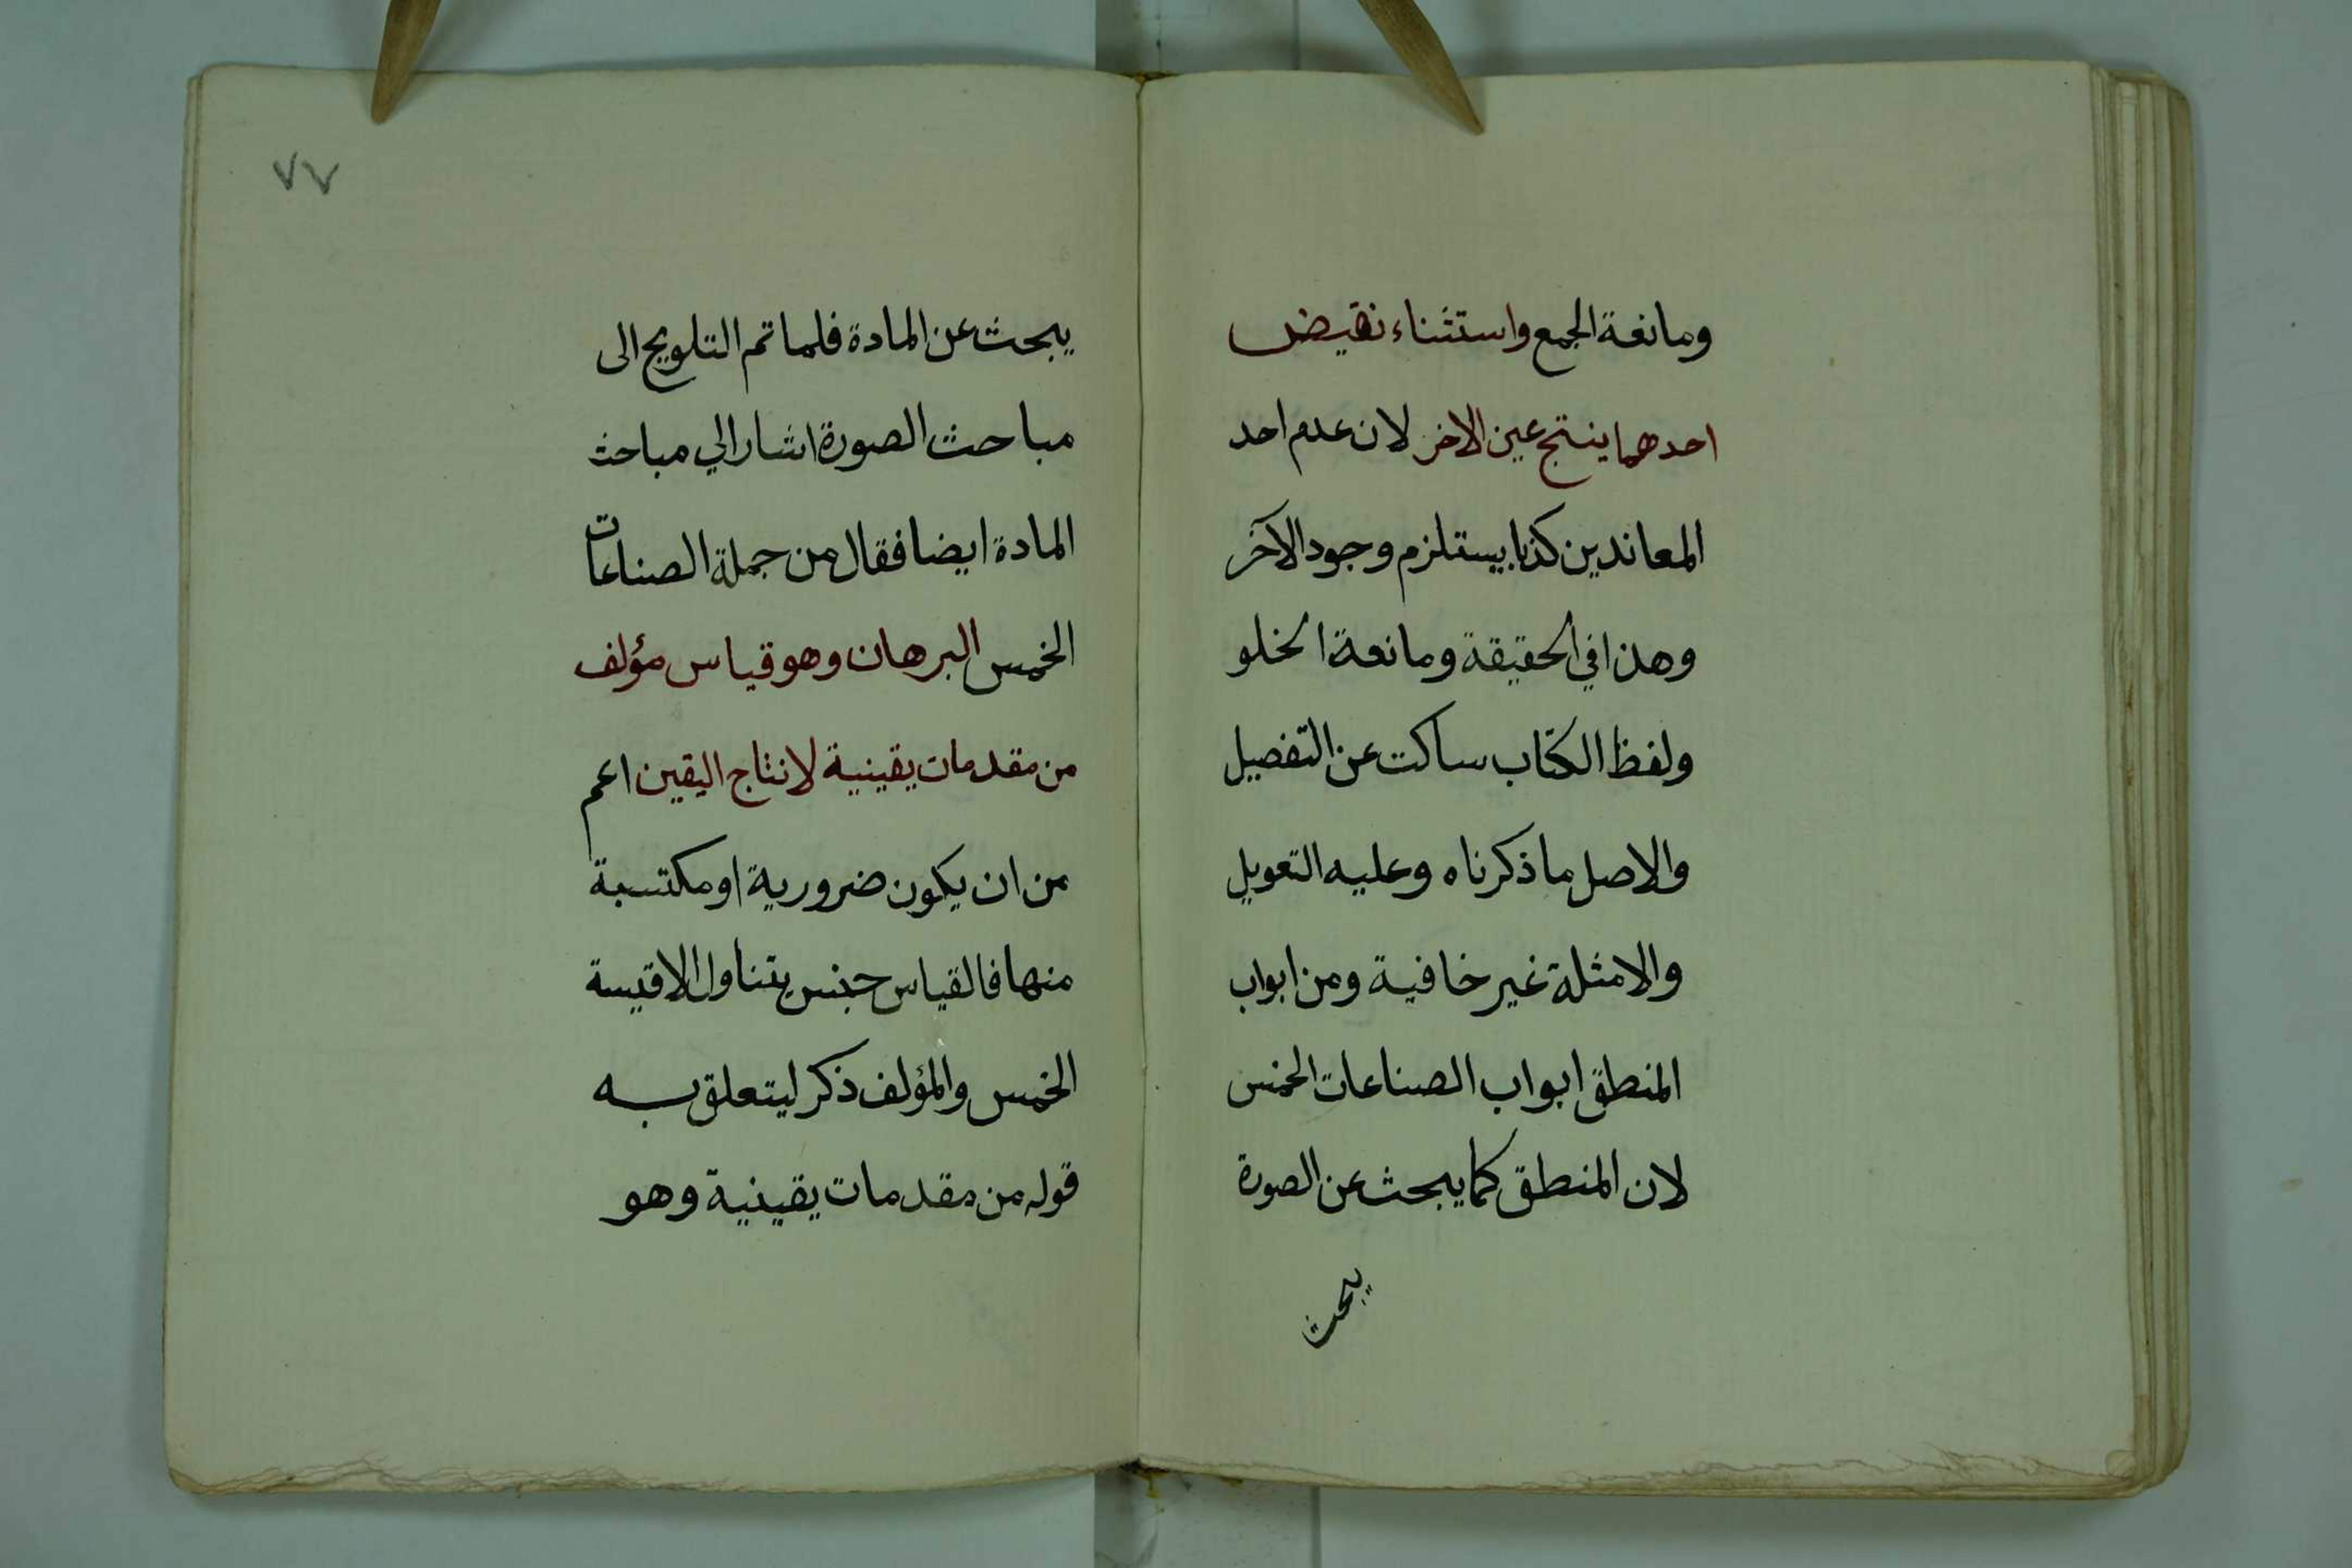 ومانعة الجمع واستثناء نقيض
احدهما ينتج عين الاخر لان عدم احد
المعاندين كذبا يستلزم وجود الآخر
وهذا في الحقيقة ومانعة الخلو
ولفظ الكتاب ساكت عن التفصيل
والاصل ما ذكرناه وعليه التعويل
والامثلة غير خافية ومن ابواب
المنطق ابواب الصناعات الخمس
لان المنطق كما يبحث عن الصورة
يبحث
٧٧
يبحث عن المادة فلما تم التلويح الى
مباحث الصورة اشار الي مباحث
المادة ايضا فقال من جملة الصناعات
الخمس البرهان وهو قياس مؤلف
من مقدمات يقينية لانتاج اليقين اعم
من ان يكون ضرورية او مكتسبة
منها فالقياس جنس يتناول الاقيسة
الخمس والمؤلف ذكر ليتعلق به
قوله من مقدمات يقينية وهو